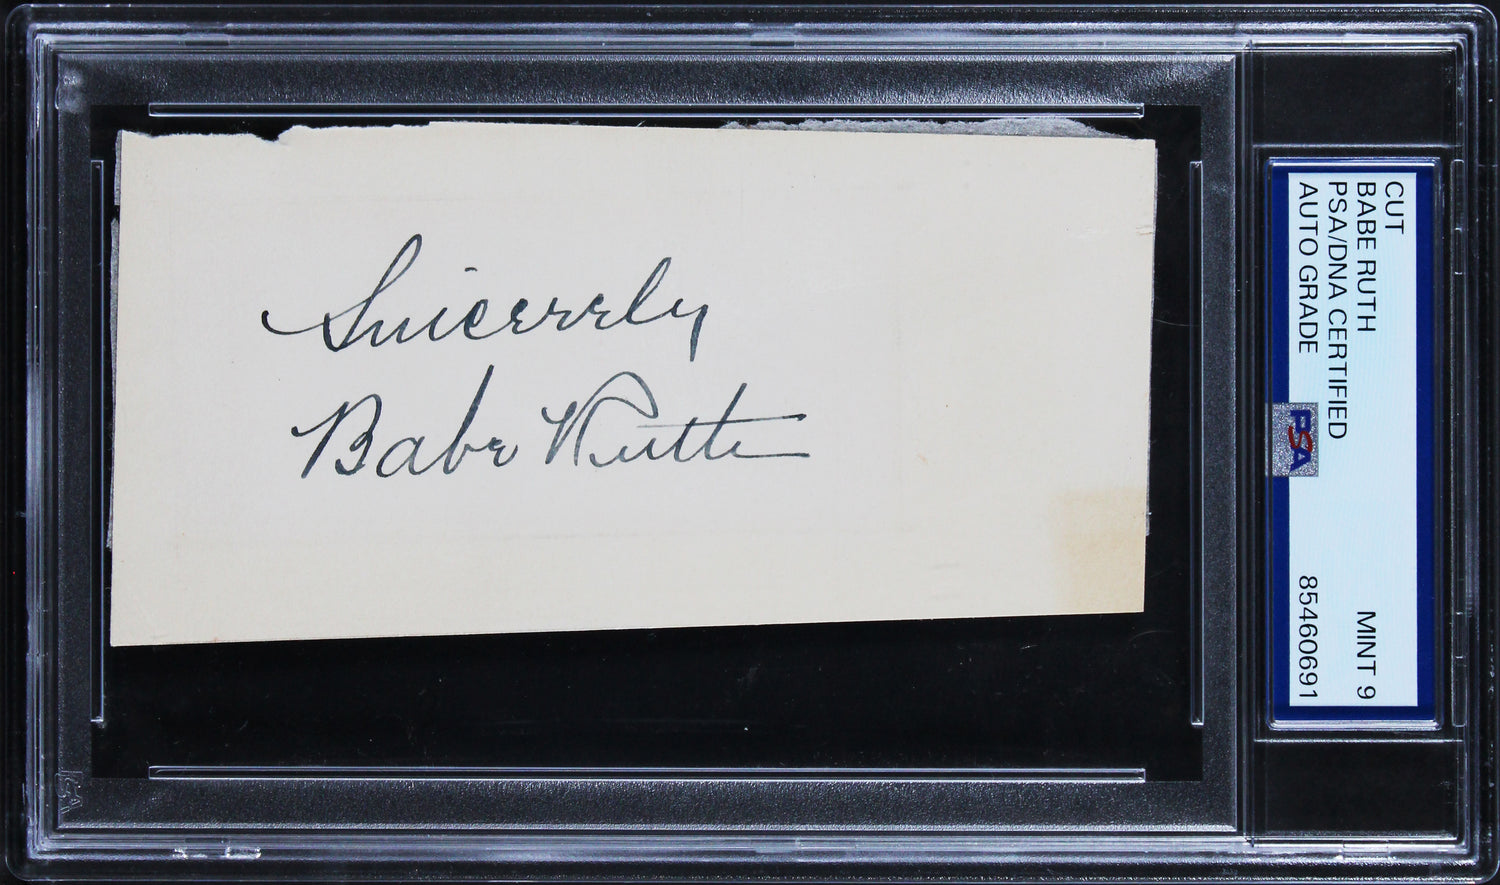 Sincerely
Babe Ruth
CUT
BABE RUTH MINT 9
PSA/DNA CERTIFIED
AUTO GRADE 85460691
PSA